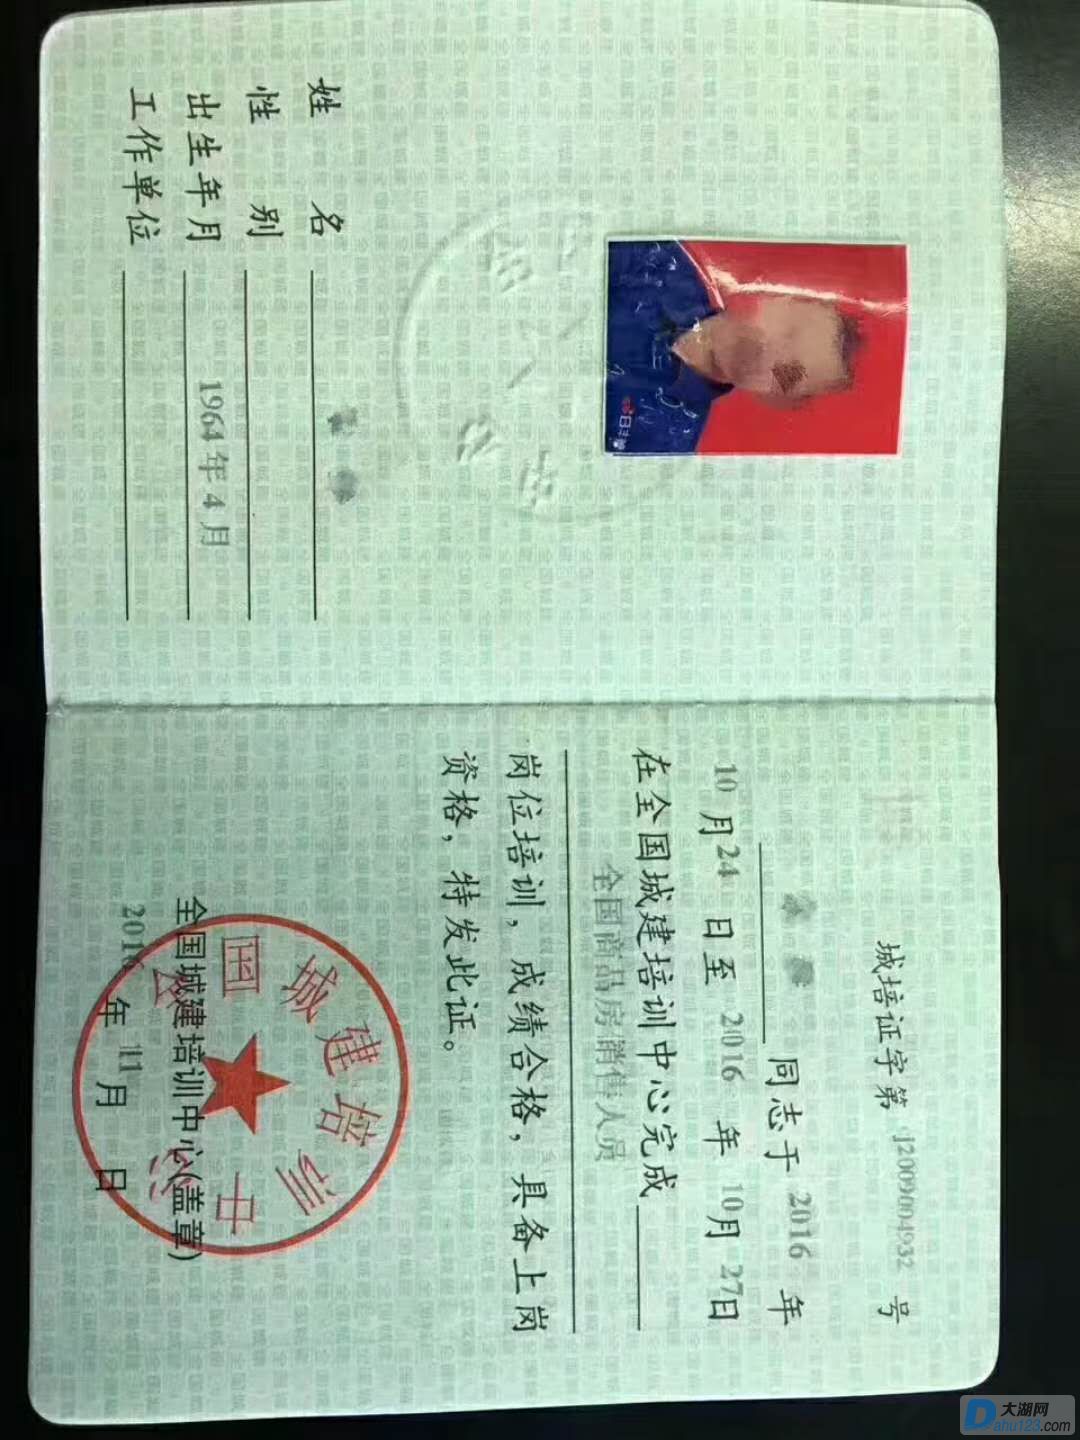 姓名
性别
出生年月 1964年4月
工作单位
城培证字第 J2009004932 号
同志于 2016 年
10 月 24 日至 2016 年 10 月 27 日
在全国城建培训中心完成
全国商品房销售人员
岗位培训，成绩合格，具备上岗
资格，特发此证。
全国城建培训中心(盖章)
2016 年 11 月 日
全国城建培训中心
大湖网
Dahu123.com